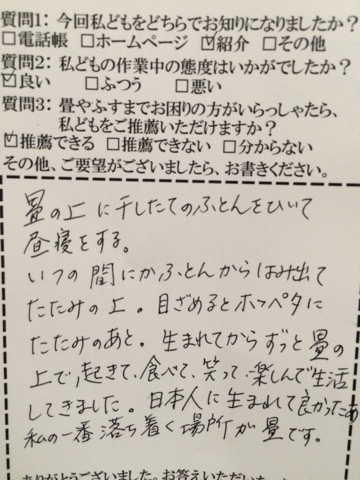 質問1：今回私どもをどちらでお知りになりましたか？
□電話帳 □ホームページ ☑紹介 □その他
質問2：私どもの作業中の態度はいかがでしたか？
☑良い □ふつう □悪い
質問3：畳やふすまでお困りの方がいらっしゃったら、
私どもをご推薦いただけますか？
☑推薦できる □推薦できない □分からない
その他、ご要望がございましたら、お書きください。
畳の上に干したてのふとんをひいて
昼寝をする。
いつの間にかふとんからはみ出て
たたみの上。目ざめるとホッペタに
たたみのあと。生まれてからずっと畳の
上で、起きて、食べて、笑って、楽しんで生活
してきました。日本人に生まれて良かったあ
私の一番落ち着く場所が畳です。
ありがとうございました。お答えいただいた